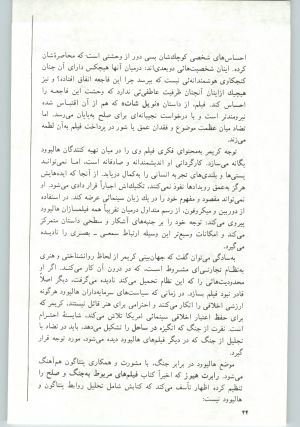 احساس‌های شخصی کوچک‌شان بسی دور از وحشتی است که محاصره‌شان
کرده. اینان شخصیت‌هائی دوبعدی‌اند: درمیان آنها هیچکس دارای آن چنان
کنجکاوی هوشمندانه‌ئی نیست که بپرسد چرا این فاجعه اتفاق افتاده؟ و نیز
هیچیك ازاینان آنچنان ظرفیت عاطفی‌ئی ندارد که وحشت این فاجعه را
احساس کند. فیلم، از داستان «نویل شات» که هم از آن اقتباس شده
نیرومندتر است و با درخواست نجیبانه‌ای برای صلح به‌پایان می‌رسد. اما
تضاد میان عظمت موضوع و فقدان عمق یا شور در پرداخت فیلم به‌آن لطمه
می‌زند.
توجه کریمر به‌محتوای فکری فیلم وی را در میان تهیه کنندگان هالیوود
یگانه می‌سازد. کارگردانی او اندیشمندانه و صادقانه است، اما نمی‌تواند
پستی‌ها و بلندی‌های تجربه انسانی را به‌کمال دریابد. از آنجا که ایده‌هایش
هرگز به‌عمق رویدادها نفوذ نمی‌کنند، تکنیك‌اش اجباراً قرار دادی می‌شود. او
نمی‌تواند مقصود و مفهوم خود را در یك زبان سینمائی عرضه کند. در استفاده
از دوربین و میکروفون، از رسم متداول درمیان تقریباً همه فیلمسازان هالیوود
پیروی می‌کند: توجه خود را بر جنبه‌های آشکار و سطحی داستان متمرکز
می‌کند و امکانات وسیع‌تر این وسیله ارتباط سمعی ـ بصری را نادیده
می‌گیرد.
به‌سادگی می‌توان گفت که جهان‌بینی کریمر از لحاظ روانشناختی و هنری
به‌نظام تجارتی‌ای مشروط است، که در درون آن کار می‌کند. اگر او
محدودیت‌هائی را که این نظام تحمیل می‌کند نادیده می‌گرفت، دیگر اصلاً
قادر نبود فیلم بسازد. در زمانی که سیاست‌های سرمایه‌داران هالیوود هرگونه
ارزشی اخلاقی را انکار می‌کنند و احترامی برای هنر قائل نیستند، کریمر که
برای حفظ اعتبار اخلاقی سینمائی امریکا تلاش می‌کند، شایستهٔ احترام
است. نفرت از جنگ که انگیزه در ساحل را تشکیل می‌دهد، باید در تضاد با
تجلیل از جنگ که در دیگر فیلم‌های هالیوود دیده می‌شود، مورد توجه قرار
گیرد.
موضع هالیوود در برابر جنگ، با مشورت و همکاری پنتاگون هم‌آهنگ
می‌شود. رابرت هیوز که اخیراً کتاب فیلم‌های مربوط به‌جنگ و صلح را
تنظیم کرده اظهار تأسف می‌کند که کتابش شامل تحلیل روابط پنتاگون و
هالیوود نیست:
۲۴